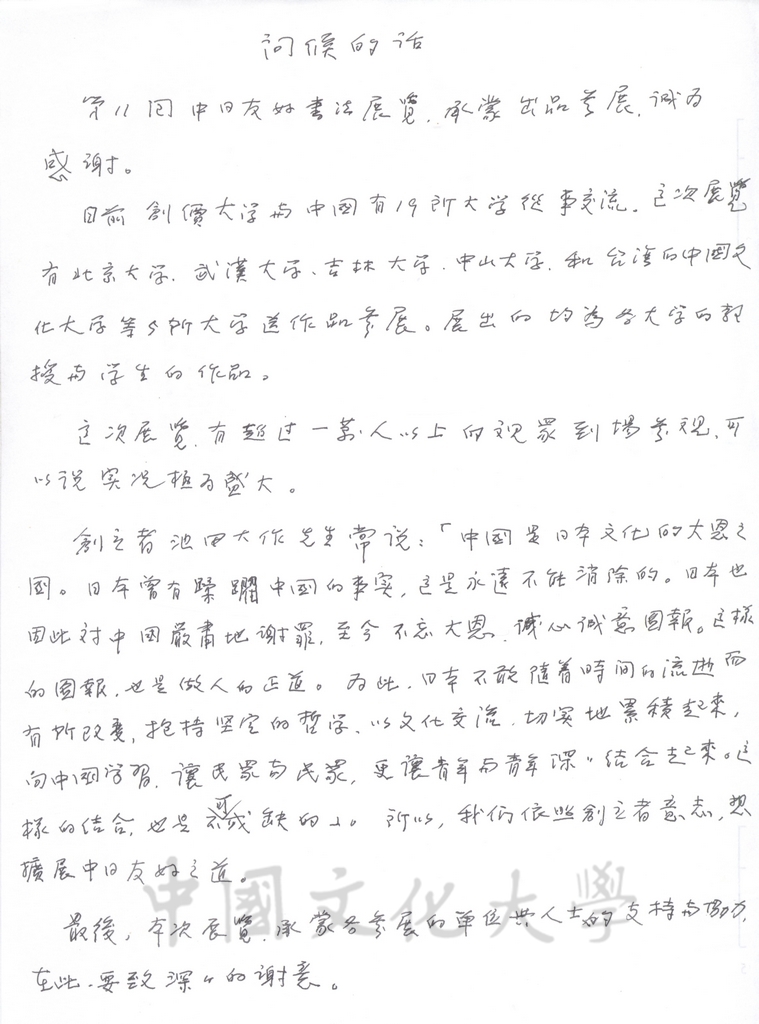 问候的话
第11回中日友好書法展覽,承蒙出品参展,诚为
感谢。
目前創價大学与中國有19所大学從事交流。这次展覽
有北京大学、武漢大学、吉林大学、中山大学、和台湾的中國文
化大学等5所大学送作品参展。展出的均為各大学的教
授与学生的作品。
这次展览,有超过一萬人以上的观眾到場参观,可
以说实况極为盛大。
創立者池田大作先生常说:「中國是日本文化的大恩之
國。日本曾有蹂躙中國的事实,这是永遠不能消除的。日本也
因此对中國嚴肅地谢罪,至今不忘大恩,诚心诚意圖報。这樣
的圖報,也是做人的正道。为此,日本不敢隨着時间的流逝而
有所改变,抱持坚定的哲学、以文化交流,切实地累積起來,
向中國学習,讓民眾与民眾,更讓青年与青年深〃结合起來。这
樣的结合,也是不可或缺的」。所以,我们依照創立者意志,想
擴展中日友好之道。
最後,本次展覽,承蒙各参展的单位與人士的支持与協力,
在此,要致深〃的谢意。
中國文化大學